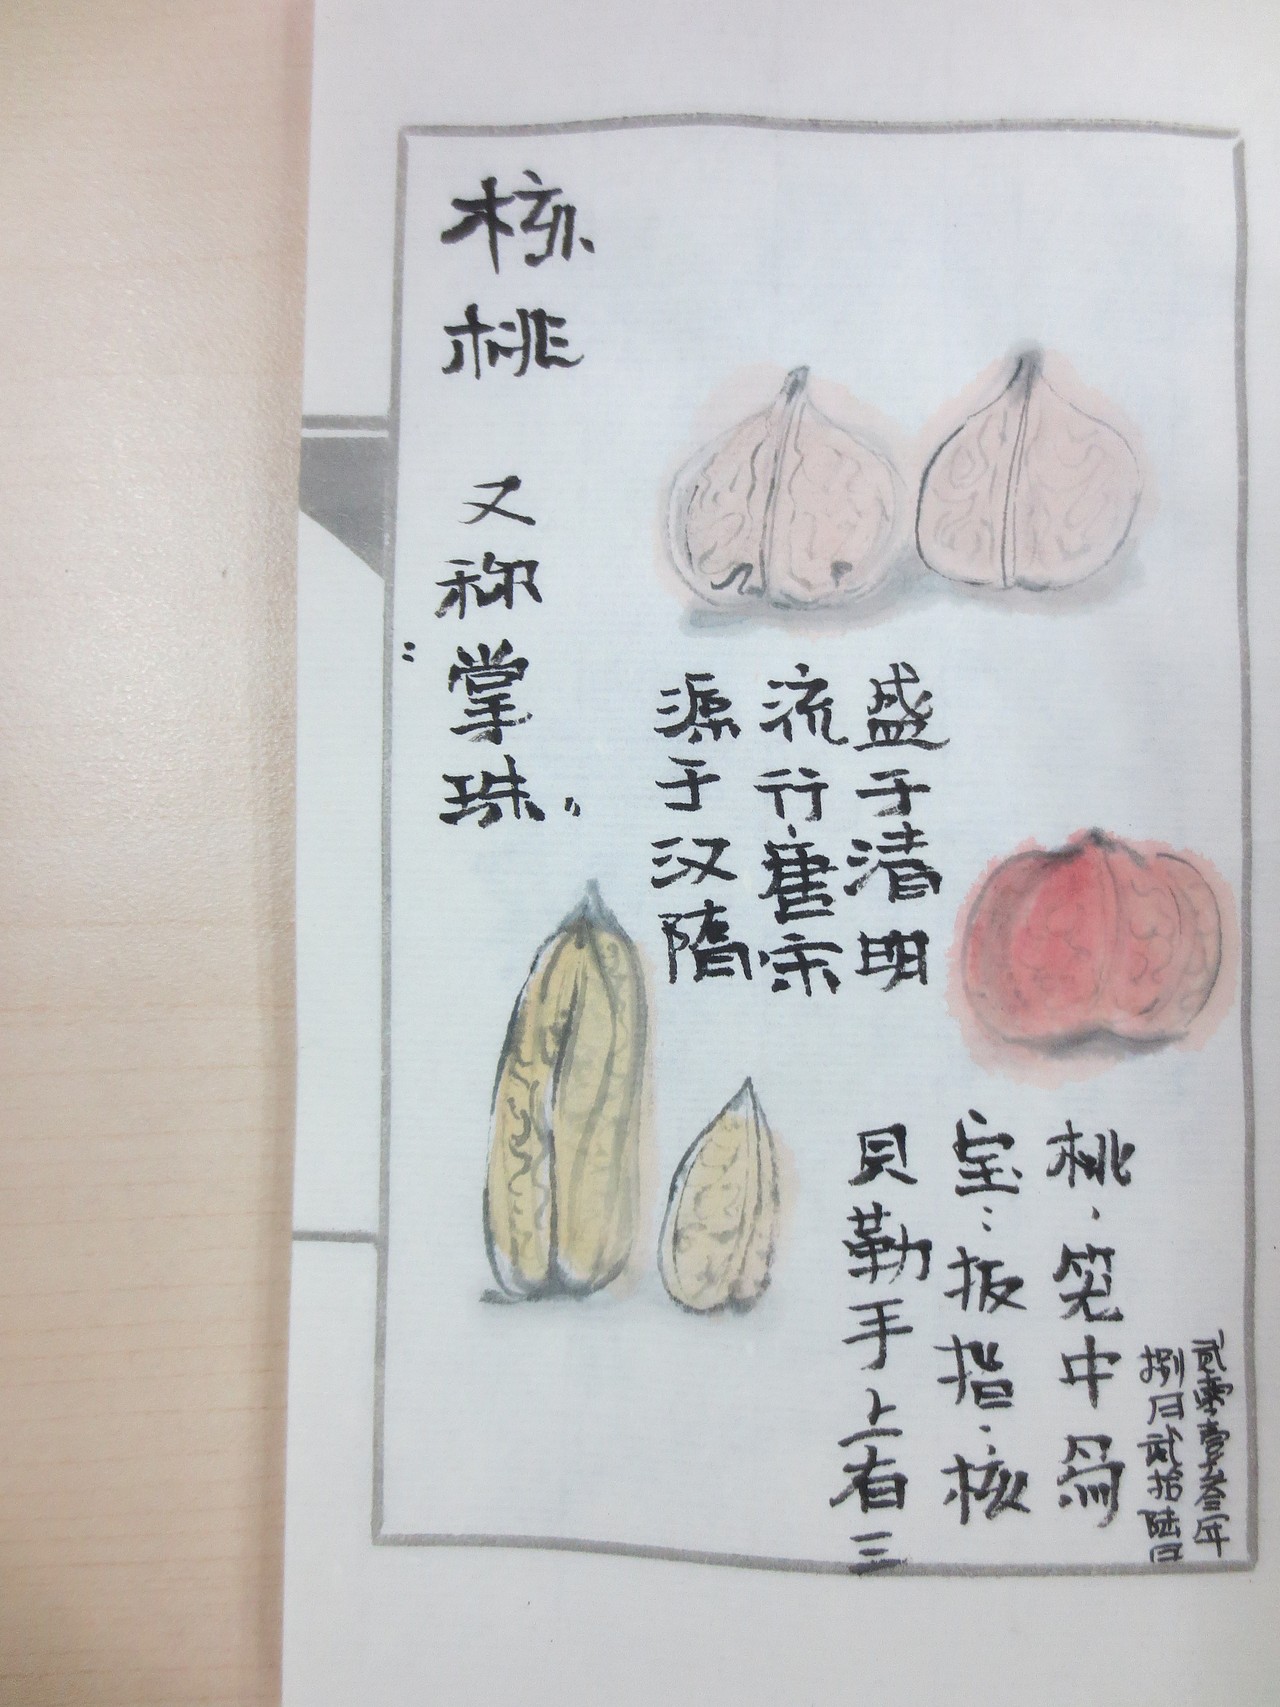 核桃
又称"掌珠"
源于汉隋
流行唐宋
盛于清明
貝勒手上有三
宝：扳指、核
桃、笼中鸟
贰零壹叁年
捌月贰拾陆日